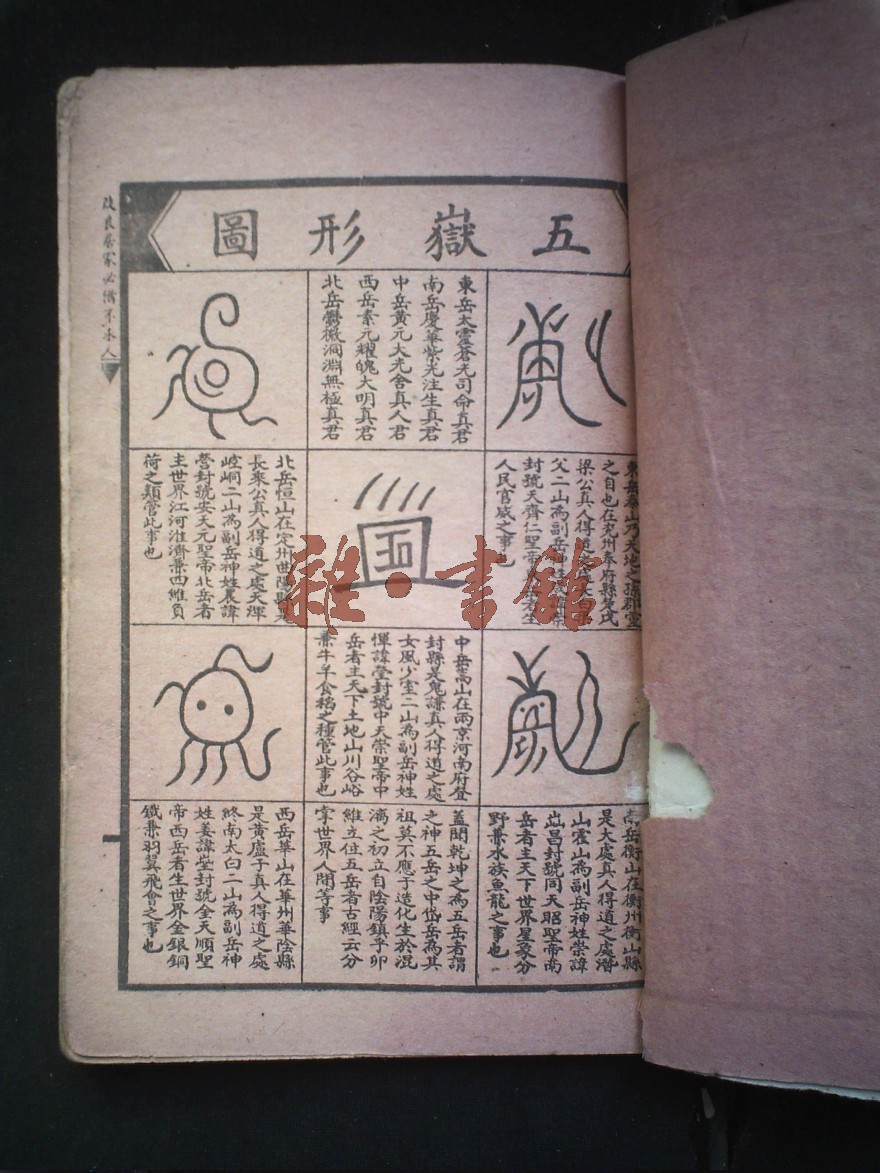 五嶽形圖
東岳太靈蒼光司命真君
南岳慶華紫光注生真君
中岳黃元大光含真人君
西岳素元耀魄大明真君
北岳鬱微洞淵無極真君
東岳泰山乃天地之孫群靈
之自也在兗州奉府縣是戊
梁公真人得道
父二山為副岳神姓
封號天齊仁聖帝
人民官威之事也
北岳恒山在定州曲陽縣是
長乘公真人得道之處天渾
崆峒二山為副岳神姓晨諱
嶜封號安天元聖帝北岳者
主世界江河淮濟兼四維負
荷之類管此事也
南岳衡山在衡州衡山縣
是大處真人得道之處潛
山霍山為副岳神姓崇諱
岊昌封號同天昭聖帝南
岳者主天下世界星象分
野兼水族魚龍之事也
中岳嵩山在兩京河南府登
封縣是鬼謙真人得道之處
女風少室二山為副岳神姓
惲諱嶜封號中天崇聖帝中
岳者主天下土地山川谷峪
兼牛羊食稻之種管此事也
蓋聞乾坤之為五岳者謂
之神五岳之中岱岳為其
祖莫不應于造化生於混
漓之初立自陰陽鎮乎卯
維立位五岳者古經云分
掌世界人閒等事
西岳華山在華州華陰縣
是黃盧于真人得道之處
終南太白二山為副岳神
姓姜諱嶜封號金天順聖
帝西岳者生世界金銀銅
鐵兼羽翼飛會之事也
改良居家必備不求人
雜·書館